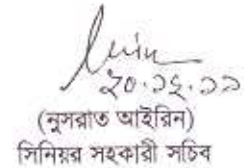 ২০.১২.১১
(নুসরাত আইরিন)
সিনিয়র সহকারী সচিব